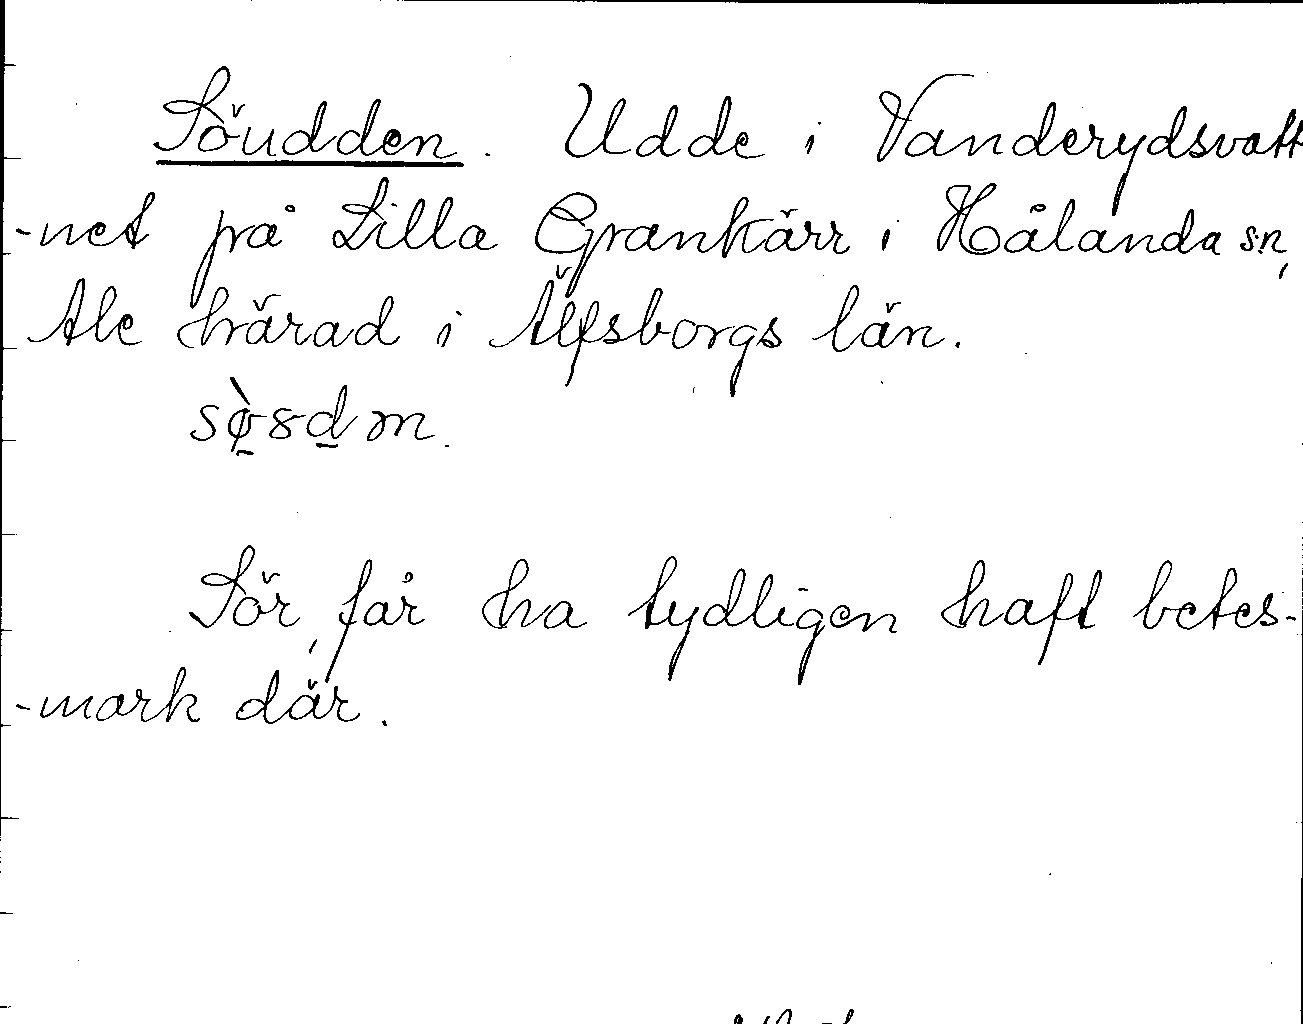 Söudden. Udde i Vanderydsvatt
-net på Lilla Grankärr i Hålanda sn,
Ale härad i Älfsborgs län.

Sör, får ha tydligen haft betes-
-mark där.